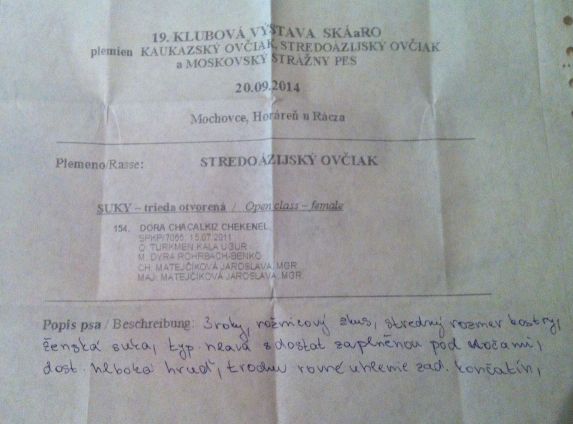 19. KLUBOVÁ VÝSTAVA SKÁaRO
plemien KAUKAZSKÝ OVČIAK, STREDOÁZIJSKÝ OVČIAK
a MOSKOVSKÝ STRÁŽNY PES
20.09.2014
Mochovce, Horáreň u Rácza
Plemeno/Rasse: STREDOÁZIJSKÝ OVČIAK
SUKY – trieda otvorená / Open class – female
154. DORA CHACALKIZ CHEKENEL
SPKP/7056, 15.07.2011
O: TURKMEN KALA UGUR
M: DYRA ROHRBACH-BENKO
CH: MATEJČÍKOVÁ JAROSLAVA, MGR.
MAJ: MATEJČÍKOVÁ JAROSLAVA, MGR.
Popis psa / Beschreibung: 3 roky, nožnicový zhus, stredný rozmer kostry,
ženská suka, typ. hlava s dostat zaplnenou pod očami,
dost. hlboká hruď, trochu rovné uhlenie zad. končatín,